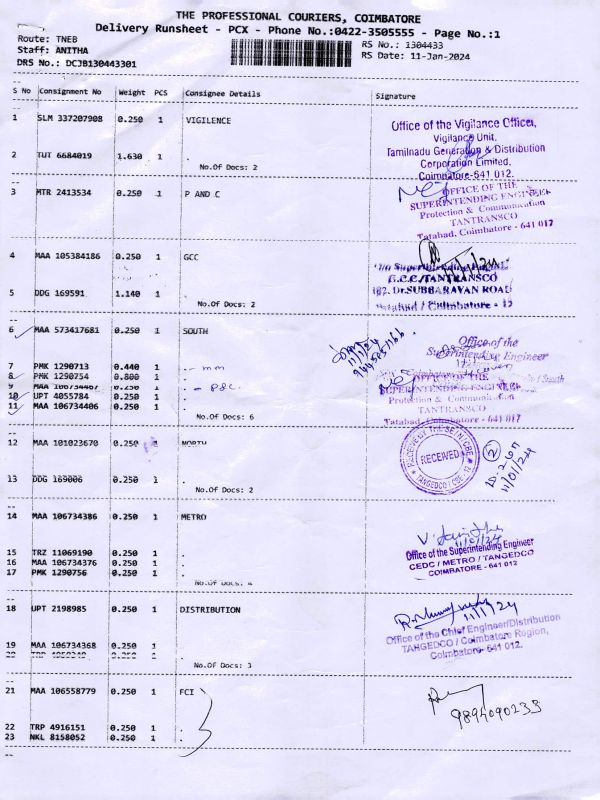 THE PROFESSIONAL COURIERS, COIMBATORE
Delivery Runsheet - PCX - Phone No.:0422-3505555 - Page No.:1
Route: TNEB
RS No.: 1304433
Staff: ANITHA
RS Date: 11-Jan-2024
DRS No.: DCJB130443301
S No Consignment No Weight PCS Consignee Details Signature
1 SLM 337207908 0.250 1 VIGILENCE
Office of the Vigilance Officer,
Vigilance Unit,
Tamilnadu Generation & Distribution
Corporation Limited.
Coimbatore-641 012.
2 TUT 6684019 1.630 1 .
No.Of Docs: 2
3 MTR 2413534 0.250 1 P AND C
OFFICE OF THE
SUPERINTENDING ENGINEER
Protection & Communication
TANTRANSCO
Tatabad, Coimbatore - 641 017
4 MAA 105384186 0.250 1 GCC
G.C.C/TANTRANSCO
182, Dr.SUBBARAYAN ROAD
Tatabad / Coimbatore - 12
5 DDG 169591 1.140 1 .
No.Of Docs: 2
6 MAA 573417681 0.250 1 SOUTH
11/1/24
Office of the
Superintending Engineer
7 PMK 1290713 0.440 1 .
8 PMK 1290754 0.800 1 .
9 MAA 106734407 0.250 1 . - P&C.
10 UPT 4055784 0.250 1 .
11 MAA 106734406 0.250 1 .
No.Of Docs: 6
OFFICE OF THE
SUPERINTENDING ENGINEER
Protection & Communication
TANTRANSCO
Tatabad, Coimbatore - 641 017
12 MAA 101023670 0.250 1 NORTH
RECEIVED
TANGEDCO / CBE-12
2
11/01/24
13 DDG 169006 0.250 1 .
No.Of Docs: 2
14 MAA 106734386 0.250 1 METRO
11/01/24
Office of the Superintending Engineer
CEDC / METRO / TANGEDCO
COIMBATORE - 641 012
15 TRZ 11069190 0.250 1 .
16 MAA 106734376 0.250 1 .
17 PMK 1290756 0.250 1 .
No.Of Docs: 4
18 UPT 2198985 0.250 1 DISTRIBUTION
11/1/24
Office of the Chief Engineer/Distribution
TANGEDCO / Coimbatore Region,
Coimbatore-641 012.
19 MAA 106734368 0.250 1 .
No.Of Docs: 3
21 MAA 106558779 0.250 1 FCI
9894090233
22 TRP 4916151 0.250 1 .
23 NKL 8158052 0.250 1 .